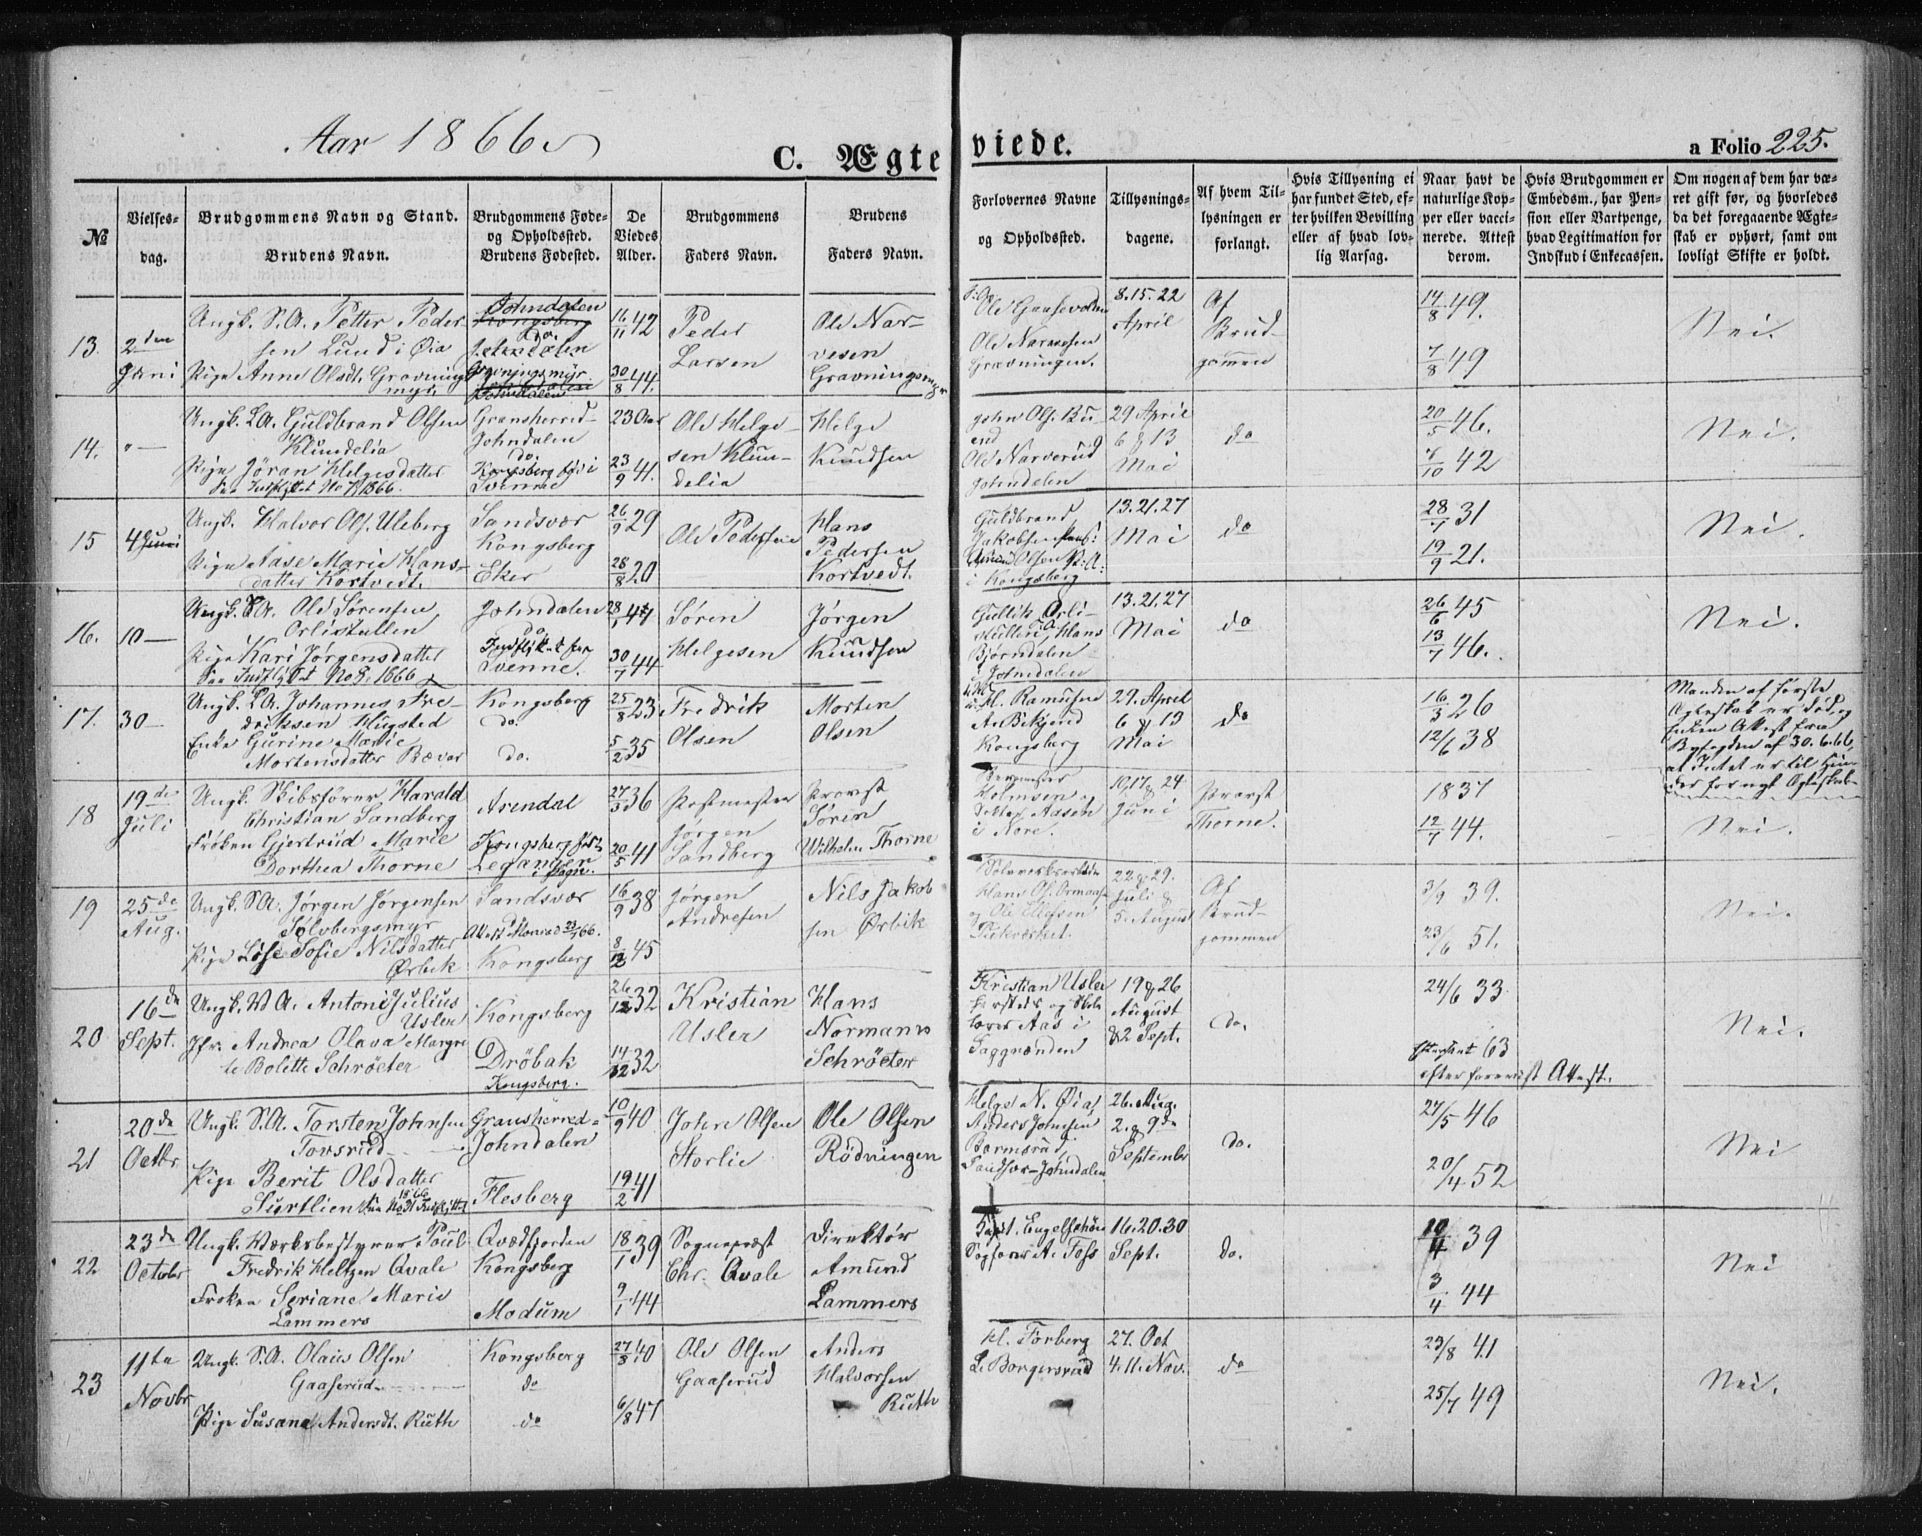 Aar 1866
C. Ægteviede.
a Folio 225.
№
Vielses-
dag.
Brudgommens Navn og Stand.
Brudens Navn.
Brudgommens Føde-
og Opholdssted.
Brudens Fødested.
De
Viedes
Alder.
Brudgommens
Faders Navn.
Brudens
Faders Navn.
Forlovernes Navne
og Opholdssted.
Tillysnings-
dagene.
Af hvem Til-
lysningen er
forlangt.
Hvis Tillysning ei
har fundet Sted, ef-
ter hvilken Bevilling
eller af hvad lov-
lig Aarsag.
Naar havt de
naturlige Kop-
per eller vacci-
nerede. Attest
derom.
Hvis Brudgommen er
Embedsm., har Pen-
sion eller Vartpenge,
hvad Legitimation for
Indskud i Enkecassen.
Om nogen af dem har væ-
ret gift før, og hvorledes
da det foregaaende Ægte-
skab er ophørt, samt om
lovligt Skifte er holdt.
13.
2den
Juni
Ungk. S.A. Petter Peder
sen Lund i Øia
Pige Anne Olsdt. Gravnings
myr.
Johndalen
Kongsberg
do.
Johndalen
Gravningsmyr.
Johndalen
16/11 42
30/8 44.
Peder
Larsen
Ole Nar-
vesen
Gravningsmyr
Ole Gaasevolden
Ole Narvesen
Gravningen.
8. 15. 22
April
Af
Brud-
gommen
14/8 49.
7/8 49
Nei.
14.
" —
Ungk. S.A. Guldbrand Olsen
Klundelia
Pige Jøran Helgesdatter
Se Indflyttet No 7 1866.
Gransherred-
Johndalen
do.
Kongsberg født i
Svenne
23 Aar
23/9 41.
Ole Helge-
sen Klun-
delia
Helge
Knudsen
John Ols. Ru-
end
Ole Narverud
Johndalen
29 April
6 & 13
Mai
do
20/5 46.
7/10 42
Nei.
15
4 Juni
Ungk. Halvor Ols. Uleberg
Pige Aase Marie Hans-
datter Kortvedt.
Sandsvær
Kongsberg
Eker
26/9 29
28/8 20
Ole Pedersen
Hans
Pedersen
Kortvedt.
Guldbrand
Jakobsen
Olsen B: A:
i Kongsberg
13. 21. 27
Mai
do
28/7 31
19/9 21.
Nei.
16.
10 —
Ungk. S.A. Ole Sørensen
Orlistullen
Pige Kari Jørgensdatter
Se Indflyttet No 8, 1866
Johndalen
do
Indflyttet fra
Svenne.
28/1 44
30/7 44
Søren
Helgesen
Jørgen
Knudsen
Gullik Orli-
stullen, Hans
Bjørndalen
i Johndalen
13. 21. 27
Mai
do
26/6 45
13/7 46.
Nei.
17.
30 —
Ungk. S.A. Johannes Fre-
driksen Hugsted
Enke Gurine Marie
Mortensdatter Bæver
Kongsberg
do.
do.
25/8 23
5/2 35
Fredrik
Olsen
Morten
Olsen
H. Ramusen
A. Bikjerd
Kongsberg
29. April
6 & 13
Mai
do
16/3 26
12/6 38
Manden af første
Ægteskab er død og
Enken Attest fra
Byfogden af 30. 6. 66,
at Intet er til Hin-
der for nyt Ægteskab
18
19de
Juli
Ungk. Skibsfører Harald
Christian Sandberg
Frøken Gjertrud Marie
Dorthea Thorne
Arendal
Kongsberg født i
Leganger
i Sogn.
27/3 36
20/5 41
Postmester
Jørgen
Sandberg
Provst
Søren
Wilhelm Thorne
Bergmester
Holmsen og
Doktor Aasen
i Nore.
10, 17 & 24
Juni
Provst
Thorne.
1837
12/7 44.
Nei.
19
25de
Aug.
Ungk. S.A. Jørgen Jørgensen
Sølvbergsmyr
Pige Løse Sofie Nilsdatter
Ørbek
Sandsvær
Attest Monrad 23/7 66.
Kongsberg
16/9 38
8/12 45
Jørgen
Andresen
Nils Jakob
sen Ørbik
Hans Ol. Ormaas
og Ole Ellefsen
22 & 29.
Juli &
5. August
Af
Brud-
gommen
3/9 39.
23/6 51.
Nei.
20
16de
Sept.
Ungk. W. A. Anton Julius
Usler
Jfr. Andrea Olava Margre
te Bolette Schrøeter
Kongsberg
Drøbak
Kongsberg.
26/12 32
14/12 32
Kristian
Usler
Hans
Normann
Schrøeter
Kristian Usler
Kirkesteds og Skole
lærer Aas i
Saggrænden
19 & 26
August
& 2 Sept.
do.
24/6 33.
63
efter forevist Attest.
Nei.
21
20de
Octbr
Ungk. S.A. Torsten Johnsen
Tovsrud
Pige Berit Olsdatter
Surtlien Se No 31 Indflyttet 1866
Gransherred-
Johndalen
Flesberg
10/9 40
19/2 41
John Olsen
Storlie
Ole Olsen
Rødningen
Helge N. Øia,
Anders Johnsen
Bormsrud.
Sandsvær-Johndalen
26. Aug.
2. & 9de
September
do.
27/5 46
20/4 52
Nei
22
23de
October
Ungk. Værksbestyrer Poul
Fredrik Heltzen Qvale
Frøken Seriane Marie
Lammers
Qvædfjorden
Kongsberg
Modum
18/1 39
9/1 44
Sogneprest
Chr. Qvale
Direktør
Amund
Lammers
Kapt. Engelschøn
Sagfører A. Foss
16. 20. 30
Sept.
do.
10/4 39
3/4 44
Nei
23
11te
Novbr
Ungk. S.A. Olaus Olsen
Gaaserud
Pige Susane Andersdt. Ruth
Kongsberg
do
do
27/3 40
6/8 47
Ole Olsen
Gaaserud
Anders
Halvorsen
Ruth
Kl. Forberg
L. Borgersrud
27. Oct
4. 11. Nov.
do
23/8 41
25/7 49
Nei.